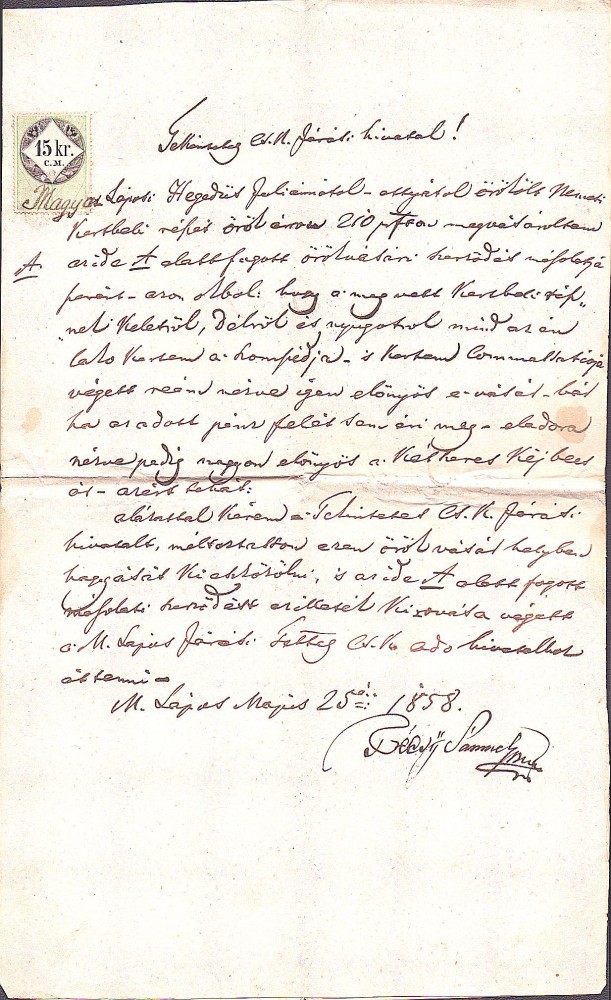 15 kr.
C.M.
Tekintetes Cs. K. Járási hivatal!
Magyar Láposi Hegedüs attyától örökölt Nemeti
Kertbeli részt örök áron 210 megvásároltam
A. az ide A alatt fogott örökvásári szerződés másolatja
szerént – azon okból: hogy a megvett Kertbeli rész„
„nek Keletről, Délről és nyugotrol mind az én
Kertem a szomszédja – is Kertem Commassatiója
végett reám nézve igen előnyös e vásár – bár
ha az adott pénz felét sem éri meg – eladóra
nézve pedig nagyon előnyös a
ár – azért tehát:
alázattal Kérem a Tekintetes Cs. K. Járási
hivatalt, méltóztasson ezen örök vásár helyben
hagyását Ki eszközölni, is az ide A alatt fogott
másolati szerződést az illeték Kiszovása végett
a M. Lápos Járási Tettes Cs. K. adó hivatalhoz
áttenni –
M. Lápos Majus 25én 1858.
Sámuel